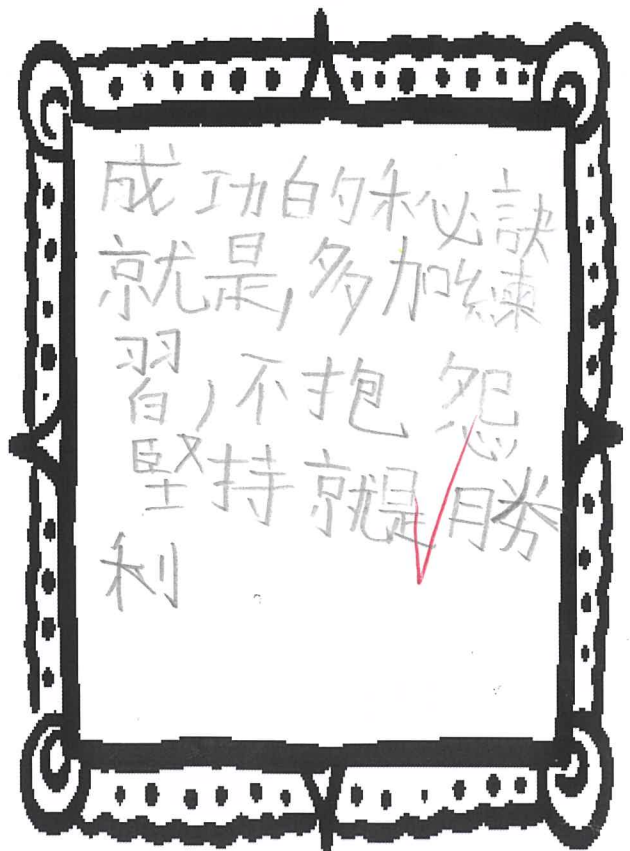 成功的秘訣
就是,多加練
習,不抱怨
堅持就是勝
利